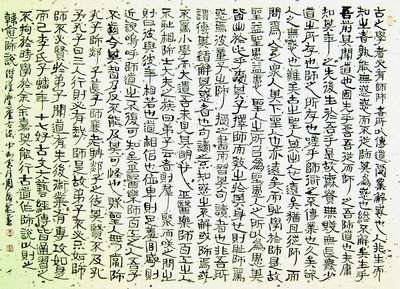 古之學者必有師師者所以傳道受業解惑也人非生而
知之者孰能無惑惑而不從師其為惑也終不解矣生乎
吾前其聞道也固先乎吾吾從而師之吾師道也夫庸
知其年之先後生於吾乎是故無貴無賤無長無少
道之所存師之所存也嗟乎師道之不傳也久矣欲
人之無惑也難矣古之聖人其出人也遠矣猶且從師而
問焉今之眾人其下聖人也亦遠矣而恥學於師是故
聖益聖愚益愚聖人之所以為聖愚人之所以為愚其
皆出於此乎愛其子擇師而教之於其身也則恥師焉
惑矣彼童子之師授之書而習其句讀者也非吾所
謂傳其道解其惑者也句讀之不知惑之不解或師焉或
不焉小學而大遺吾未見其明也巫醫樂師百工之人
不恥相師士大夫之族曰師曰弟子云者則群聚而笑之問之
則曰彼與彼年相若也道相似也位卑則足羞官盛則
近諛嗚呼師道之不復可知矣巫醫樂師百工之人君子
不齒今其智乃反不能及其可怪也歟聖人無常師
孔子師郯子萇弘師襄老聃郯子之徒其賢不及孔
子孔子曰三人行則必有我師是故弟子不必不如師
師不必賢於弟子聞道有先後術業有專攻如是
而已李氏子蟠年十七好古文六藝經傳皆通習之
不拘於時學於余余嘉其能行古道作師說以貽之
韓愈師說